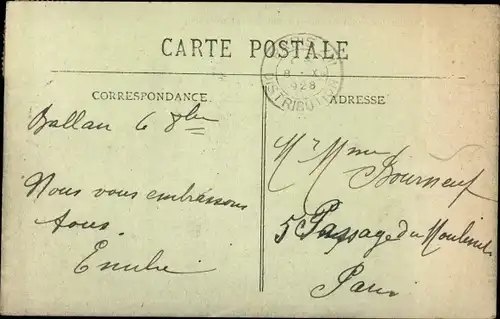 CARTE POSTALE
CORRESPONDANCE
ADRESSE
DISTRIBUTION
Ballan 6 8bre
Nous vous embrassons
tous.
Emilie
Mr Mme
Bourneuf
5 Passage du Moulinet
Paris